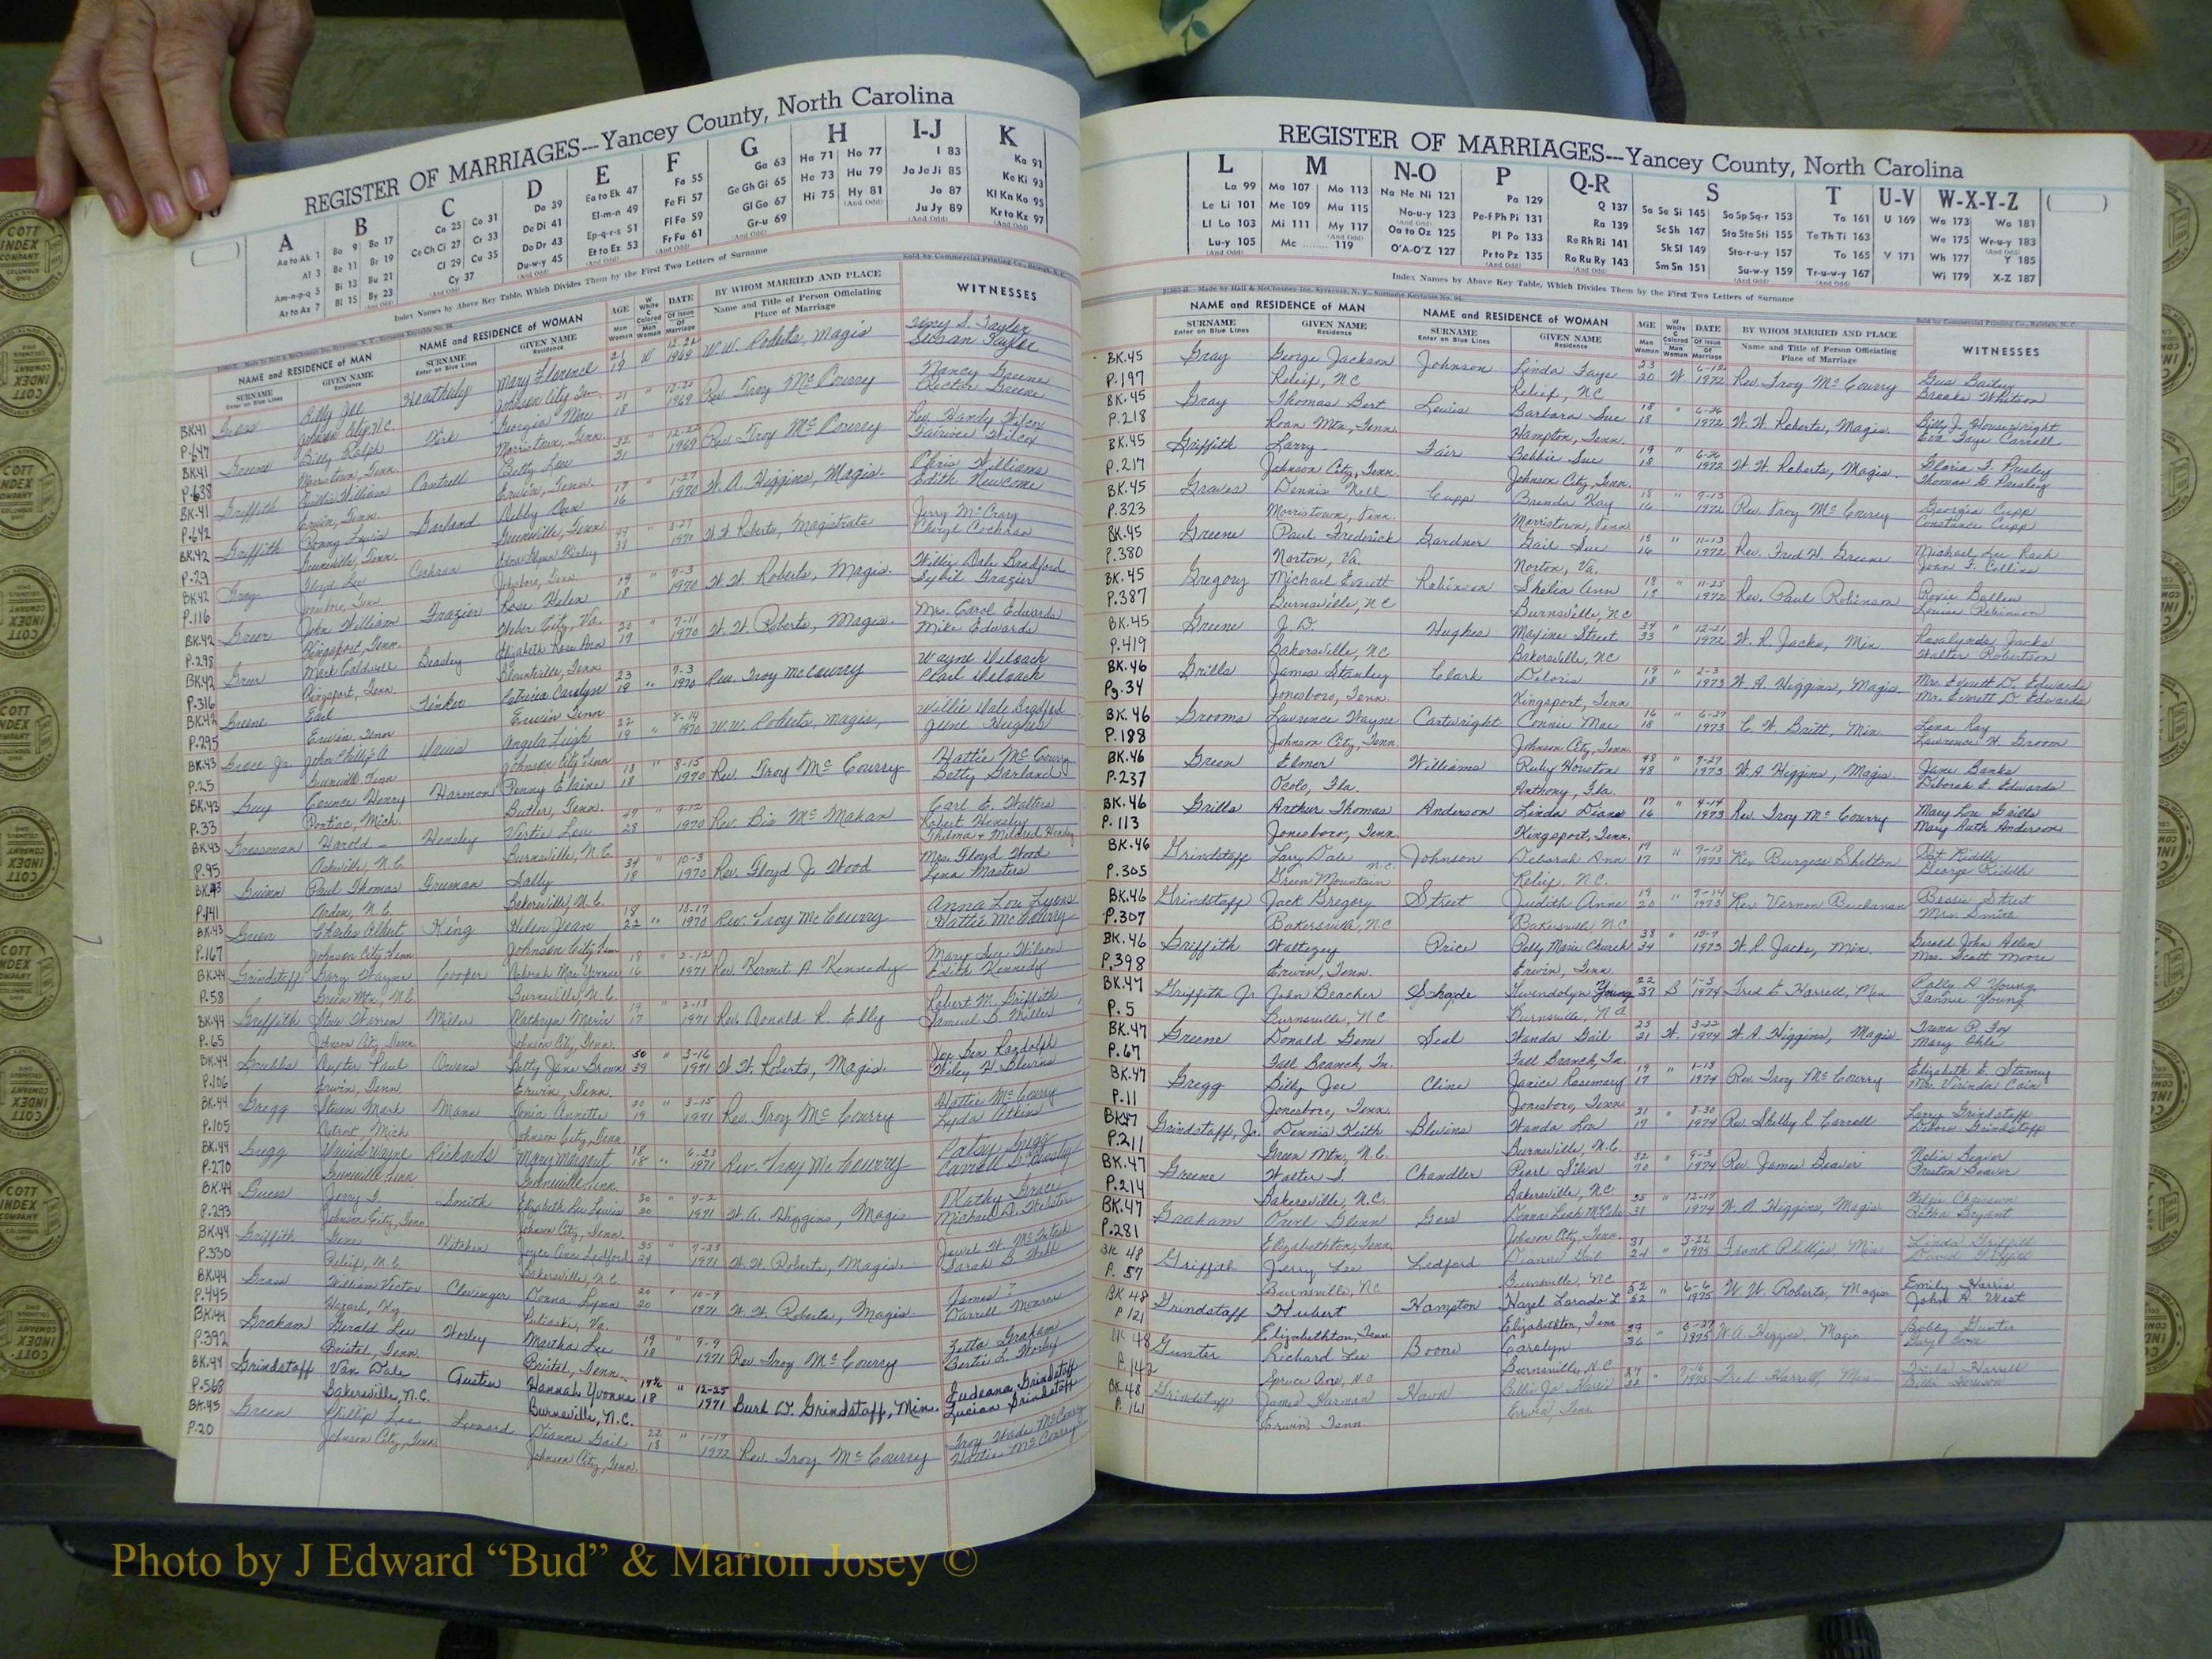 REGISTER OF MARRIAGES---Yancey County, North Carolina
A B C D E F G H I-J K
Aa to Ak 1 Ba 9 Bo 17 Ca 25 Co 31 Da 39 Ea to Ek 47 Fa 55 Ga 63 Ha 71 Ho 77 I 83 Ka 91
Al 3 Be 11 Br 19 Ce Ch Ci 27 Cr 33 De Di 41 El-m-n 49 Fe Fi 57 Ge Gh Gi 65 He 73 Hu 79 Ja Je Ji 85 Ke Ki 93
Am-n-p-q 5 Bi 13 Bu 21 Cl 29 Cu 35 Do Dr 43 Ep-q-r-s 51 Fl Fo 59 Gl Go 67 Hi 75 Hy 81 Jo 87 Kl Kn Ko 95
Ar to Az 7 Bl 15 By 23 Cy 37 Du-w-y 45 Et to Ez 53 Fr Fu 61 Gr-u 69 Ju Jy 89 Kr to Kz 97
Index Names by Above Key Table, Which Divides Them by the First Two Letters of Surname
NAME and RESIDENCE of MAN NAME and RESIDENCE of WOMAN AGE DATE BY WHOM MARRIED AND PLACE WITNESSES
SURNAME GIVEN NAME SURNAME GIVEN NAME Name and Title of Person Officiating
Enter on Blue Lines Residence Place of Marriage
BK.41 Billy Joe Mary Florence 21 W 12-22 W.W. Roberts, Magis
P.647 Johnson City, N.C. 19 1969
BK.41 Greene Billy Ralph Kirk Georgia Mae 21 " 1969 Rev. Troy McCourry Nancy Greene
P.638 Morristown, Tenn. Morristown, Tenn. 18 Rector Greene
BK.41 Griffith William Cantrell Betty Lou 32 " 12-22 1969 Rev. Troy McCourry Rev. Handy Wilcox
P.642 Erwin, Tenn. Erwin, Tenn. 31
BK.42 Griffith Ronny Lewis Garland Debby Ann 17 " 1-27 1970 W.A. Higgins, Magis. Chris Williams
P.29 Greenville, Tenn. Greenville, Tenn. 16 Edith Newcome
BK.42 Gray Floyd Lee Cochran 1970 W.W. Roberts, Magistrate Jerry McCrary
P.116 Jonesboro, Tenn. Jonesboro, Tenn. Cheryl Cochran
BK.42 Greer John William Frazier Rose Helen 19 " 7-3 1970 W.W. Roberts, Magis. Willie Dale Bradford
P.298 Kingsport, Tenn. Weber City, Va. 18 Sybil Frazier
BK.42 Greer Mark Caldwell Beasley Elizabeth Rose Ann 20 " 7-11 1970 W.W. Roberts, Magis. Mrs. Carol Edwards
P.316 Kingsport, Tenn. Blountville, Tenn. 19 Mike Edwards
BK.42 Greene Earl Tinker Patricia Carolyn 23 " 7-3 1970 Rev. Troy McCourry Wayne DeLoach
P.295 Erwin, Tenn Erwin Tenn 19 Pearl DeLoach
BK.43 John Phillip A Davis Angela Leigh 22 " 8-14 1970 W.W. Roberts, Magis, Willie Dale Bradford
P.25 Johnson City Tenn 19 June Hughes
BK.43 Guy Counce Henry Harmon Penny Elaine 18 " 8-15 1970 Rev. Troy McCourry Hattie McCourry
P.33 Pontiac, Mich. Butler, Tenn. 18 Betty Garland
BK.43 Grossman Harold Hensley Vertie Lou 47 " 9-12 1970 Rev. Bis McMahan Carl E. Walters
P.95 Asheville, N.C. Burnsville, N.C. 28 Robert Hensley
Thelma & Mildred Hensley
BK.43 Guinn Paul Thomas Freeman Sally 34 " 10-3 1970 Rev. Floyd J. Wood Mrs. Floyd Wood
P.141 Arden, N.C. Bakersville, N.C. 18 Lena Masters
BK.43 Green Charles Albert King Helen Jean 18 " 12-17 1970 Rev. Troy McCourry Anna Lou Lyons
P.167 Johnson City Tenn Johnson City Tenn 22 Hattie McCourry
BK.44 Grindstaff Gary Wayne Cooper Deborah Mae Yvonne 18 " 2-12 1971 Rev. Kermit A. Kennedy Mary Lee Wilson
P.58 Green Mtn., N.C. Burnsville, N.C. 16 Edith Kennedy
BK.44 Griffith Steve Warren Miller Kathryn Marie 19 " 2-18 1971 Rev. Donald R. Elly Robert M. Griffith
P.65 Johnson City, Tenn. Johnson City, Tenn. 17 Samuel D. Miller
BK.44 Paul Owens Betty Jane Brown 50 " 3-16 1971 W.W. Roberts, Magis. Joe Ben Randolph
P.106 Erwin, Tenn. Erwin, Tenn. 39 Wiley H. Blevins
BK.44 Gregg Steven Mark Mann Tonia Annette 20 " 3-15 1971 Rev. Troy McCourry Hattie McCourry
P.105 Detroit, Mich Johnson City, Tenn. 19 Lyda Atkins
BK.44 Gregg David Wayne Richards Mary Margaret 18 " 6-23 1971 Rev. Troy McCourry Patsy Gregg
P.270 Greenville Tenn Greenville Tenn. 18
BK.44 Guess Jerry Smith Elizabeth Lee Lewis 30 " 7-2 1971 W.A. Higgins, Magis Kathy Grace
P.293 Johnson City, Tenn Johnson City, Tenn. 20 Michael D. Webster
BK.44 Griffith Gene Joyce Ann Ledford 35 " 7-23 1971 W.W. Roberts, Magis.
P.330 Relief, N.C. Bakersville, N.C. Sarah B. Webb
BK.44 Grass William Victor Clevinger Donna Lynn 20 " 10-9 1971 W.W. Roberts, Magis James ?
P.445 Pulaski, Va. 20 Darrell Monroe
BK.44 Graham Gerald Lee Worley Martha Lee 19 " 9-9 1971 Rev. Troy McCourry Zetta Graham
P.392 Bristol, Tenn. Bristol, Tenn. 18 Bertie L. Worley
BK.44 Grindstaff Van Dale Austin Hannah Yvonne 19½ " 12-25 1971 Burl W. Grindstaff, Min. Ludeana Grindstaff
P.568 Bakersville, N.C. Burnsville, N.C. 18 Lucian Grindstaff
BK.45 Green Phillip Lee Leonard Dianne Gail 22 " 1-17 1972 Rev. Troy McCourry Troy Wade McCourry
P.20 Johnson City, Tenn. Johnson City, Tenn. 18 Hattie McCourry
REGISTER OF MARRIAGES---Yancey County, North Carolina
L M N-O P Q-R S T U-V W-X-Y-Z
La 99 Ma 107 Mo 113 Na Ne Ni 121 Pa 129 Q 137 Sa Se Si 145 Sa Sp Sq-r 153 Ta 161 U 169 Wa 173 Wo 181
Le Li 101 Me 109 Mu 115 No-u-y 123 Pe-f Ph Pi 131 Ra 139 Sc Sh 147 Sta Ste Sti 155 Te Th Ti 163 We 175 Wr-u-y 183
Ll Lo 103 Mi 111 My 117 Oa to Oz 125 Pl Po 133 Re Rh Ri 141 Sk Sl 149 Sto-r-u-y 157 To 165 V 171 Wh 177 Y 185
Lu-y 105 Mc 119 O'A-O'Z 127 Pr to Pz 135 Ro Ru Ry 143 Sm Sn 151 Su-w-y 159 Tr-u-w-y 167 Wi 179 X-Z 187
Index Names by Above Key Table, Which Divides Them by the First Two Letters of Surname
NAME and RESIDENCE of MAN NAME and RESIDENCE of WOMAN AGE DATE BY WHOM MARRIED AND PLACE WITNESSES
SURNAME GIVEN NAME SURNAME GIVEN NAME Name and Title of Person Officiating
Enter on Blue Lines Residence Enter on Blue Lines Residence Place of Marriage
BK.45 Gray George Jackson Johnson Linda Faye 23 W. 6-12 1972 Rev. Troy McCourry Gus Bailey
P.197 Relief, NC Relief, NC 20 Brooks Whitson
BK.45 Gray Thomas Bert Lewis Barbara Sue 18 " 6-24 1972 W.W. Roberts, Magis. Billy J. Housewright
P.218 Roan Mtn, Tenn. Hampton, Tenn. 18 Eva Faye Carroll
BK.45 Griffith Larry Fair Bobbie Sue 19 " 6-26 1972 W.W. Roberts, Magis. Gloria F. Presley
P.217 Johnson City, Tenn. Johnson City, Tenn. 18 Thomas G. Presley
BK.45 Graves Dennis Nell Cupp Brenda Kay 18 " 9-13 1972 Rev. Troy McCourry Georgia Cupp
P.323 Morristown, Tenn. Morristown, Tenn 16 Constance Cupp
BK.45 Greene Paul Frederick Gardner Gail Sue 18 " 11-13 1972 Rev. Fred H. Greene Michael Lee Rash
P.380 Norton, Va. Norton, Va. 16 Joan F. Collins
BK.45 Gregory Michael Everett Robinson Shelia Ann 18 " 11-25 1972 Rev. Paul Robinson Roxie Ballew
P.387 Burnsville, NC Burnsville, NC 18 Louise Robinson
BK.45 Greene J.D. Hughes Maxine Street 34 " 12-21 1972 W.R. Jacks, Min. Rosalynda Jacks
P.419 Bakersville, NC Bakersville, NC 33 Walter Robertson
BK.46 Grills James Stanley Clark Deloris 19 " 2-3 1973 W.A. Higgins, Magis. Mrs. Everett D. Edwards
Pg.34 Jonesboro, Tenn. Kingsport, Tenn 18 Mr. Everett D. Edwards
BK.46 Grooms Lawrence Wayne Cartwright Connie Mae 16 " 6-27 1973 C.W. Britt, Min Lena Ray
P.188 Johnson City, Tenn. Johnson City, Tenn. 18 Lawrence H. Groom
BK.46 Green Elmer Williams Ruby Houston 48 " 9-27 1973 W.A. Higgins, Magis. Jane Banks
P.237 Ocolo, Fla. Anthony, Fla. 48 Deborah E. Edwards
BK.46 Grills Arthur Thomas Anderson Linda Diane 17 " 4-14 1973 Rev. Troy McCourry Mary Lou Grills
P.113 Jonesboro, Tenn. Kingsport, Tenn. 16 Mary Ruth Anderson
BK.46 Grindstaff Larry Dale Johnson Deborah Ann 19 " 9-13 1973 Rev Burgess Shelton Pat Riddle
P.305 Green Mountain N.C. Relief, N.C. 17 George Riddle
BK.46 Grindstaff Jack Gregory Street Judith Anne 19 " 9-14 1973 Rev Vernon Buchanan Bessie Street
P.307 Bakersville, NC Bakersville, NC 20 Mrs. Smith
BK.46 Griffith Price Polly Marie Church 38 " 12-7 1973 W.R. Jacks, Min. Gerald John Allen
P.398 Erwin, Tenn. Erwin, Tenn. 34 Mrs. Scott Moore
BK.47 Griffith Jr John Beacher Schade Gwendolyn Young 22 B 1-3 1974 Fred E. Harrell, Min Polly A Young
P.5 Burnsville, NC Burnsville, NC 37 Fannie Young
BK.47 Greene Donald Gene Seal Wanda Gail 23 W. 3-22 1974 W.A. Higgins, Magis Trena P. Fox
P.67 Fall Branch, Tn. Fall Branch, Tn. 21 Mary Ohle
BK.47 Gregg Billy Joe Cline Janice Rosemary 19 " 1-13 1974 Rev. Troy McCourry Elizabeth E. Stamey
P.11 Jonesboro, Tenn. Jonesboro, Tenn 17 Mrs. Virinda Cain
BK.47 Grindstaff, Jr. Dennis Keith Blevins Wanda Lou 21 " 8-30 1974 Rev Shelby C Carroll Larry Grindstaff
P.211 Green Mtn, N.C. Burnsville, N.C. 17 Debora Grindstaff
BK.47 Greene Walter S. Chandler Pearl Silver 82 " 9-3 1974 Rev. James Beaver Nelia Beaver
P.214 Bakersville, N.C. Bakersville, NC 70 Preston Beaver
BK.47 Graham Glenn Goss Donna Leah McCabe 35 " 12-17 1974 W.A. Higgins, Magis
P.281 Elizabethton, Tenn. Johnson City, Tenn. 31 Retha Bryant
BK 48 Griffith Jerry Lee Ledford Dianne Gail 31 " 3-22 1975 Frank Phillips Min Linda Griffith
P. 57 Burnsville, NC Burnsville, NC 24 David Griffith
BK 48 Grindstaff Hubert Hampton Hazel Larado L 52 " 6-6 1975 W.W. Roberts, Magis Emily Harris
P 121 Elizabethton, Tenn Elizabethton, Tenn 52 John A. West
BK 48 Gunter Richard Lee Boone Carolyn 39 " 6-27 1975 W.A. Higgins, Magis Bobby Gunter
P. 142 Spruce Pine, N.C Burnsville, N.C. 36
BK 48 Grindstaff James Harman Hawn Billie Jo Harris 27 " 7-16 1975 Fred Harrell, Min
P. 161 Erwin, Tenn. Erwin, Tenn 22
Photo by J Edward “Bud” & Marion Josey ©
COTT
INDEX
COMPANY